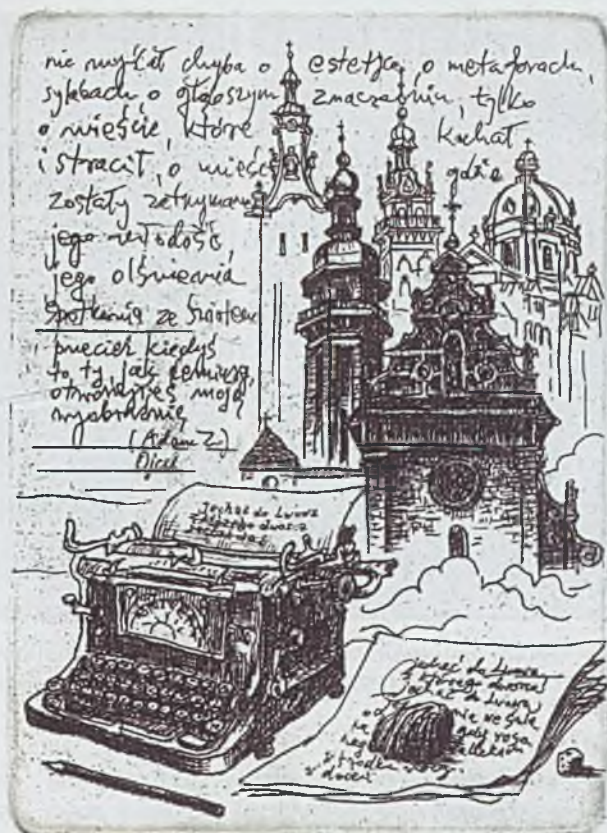 nie myślał chyba o estetyce, o metaforach,
sylabach, o głębszym znaczeniu, tylko
o mieście, które kochał
i stracił, o mieście gdzie
zostały zatrzymane
jego młodość,
jego olśnienia
spotkania ze światem
przecież kiedyś
to ty jak
otworzyłeś moją
wyobraźnię
(Adam Z)
Ojciec
Jechać do Lwowa
z którego dworca
jechać do Lwowa
z którego dworca
jechać do Lwowa,
nie we śnie
gdy rosa